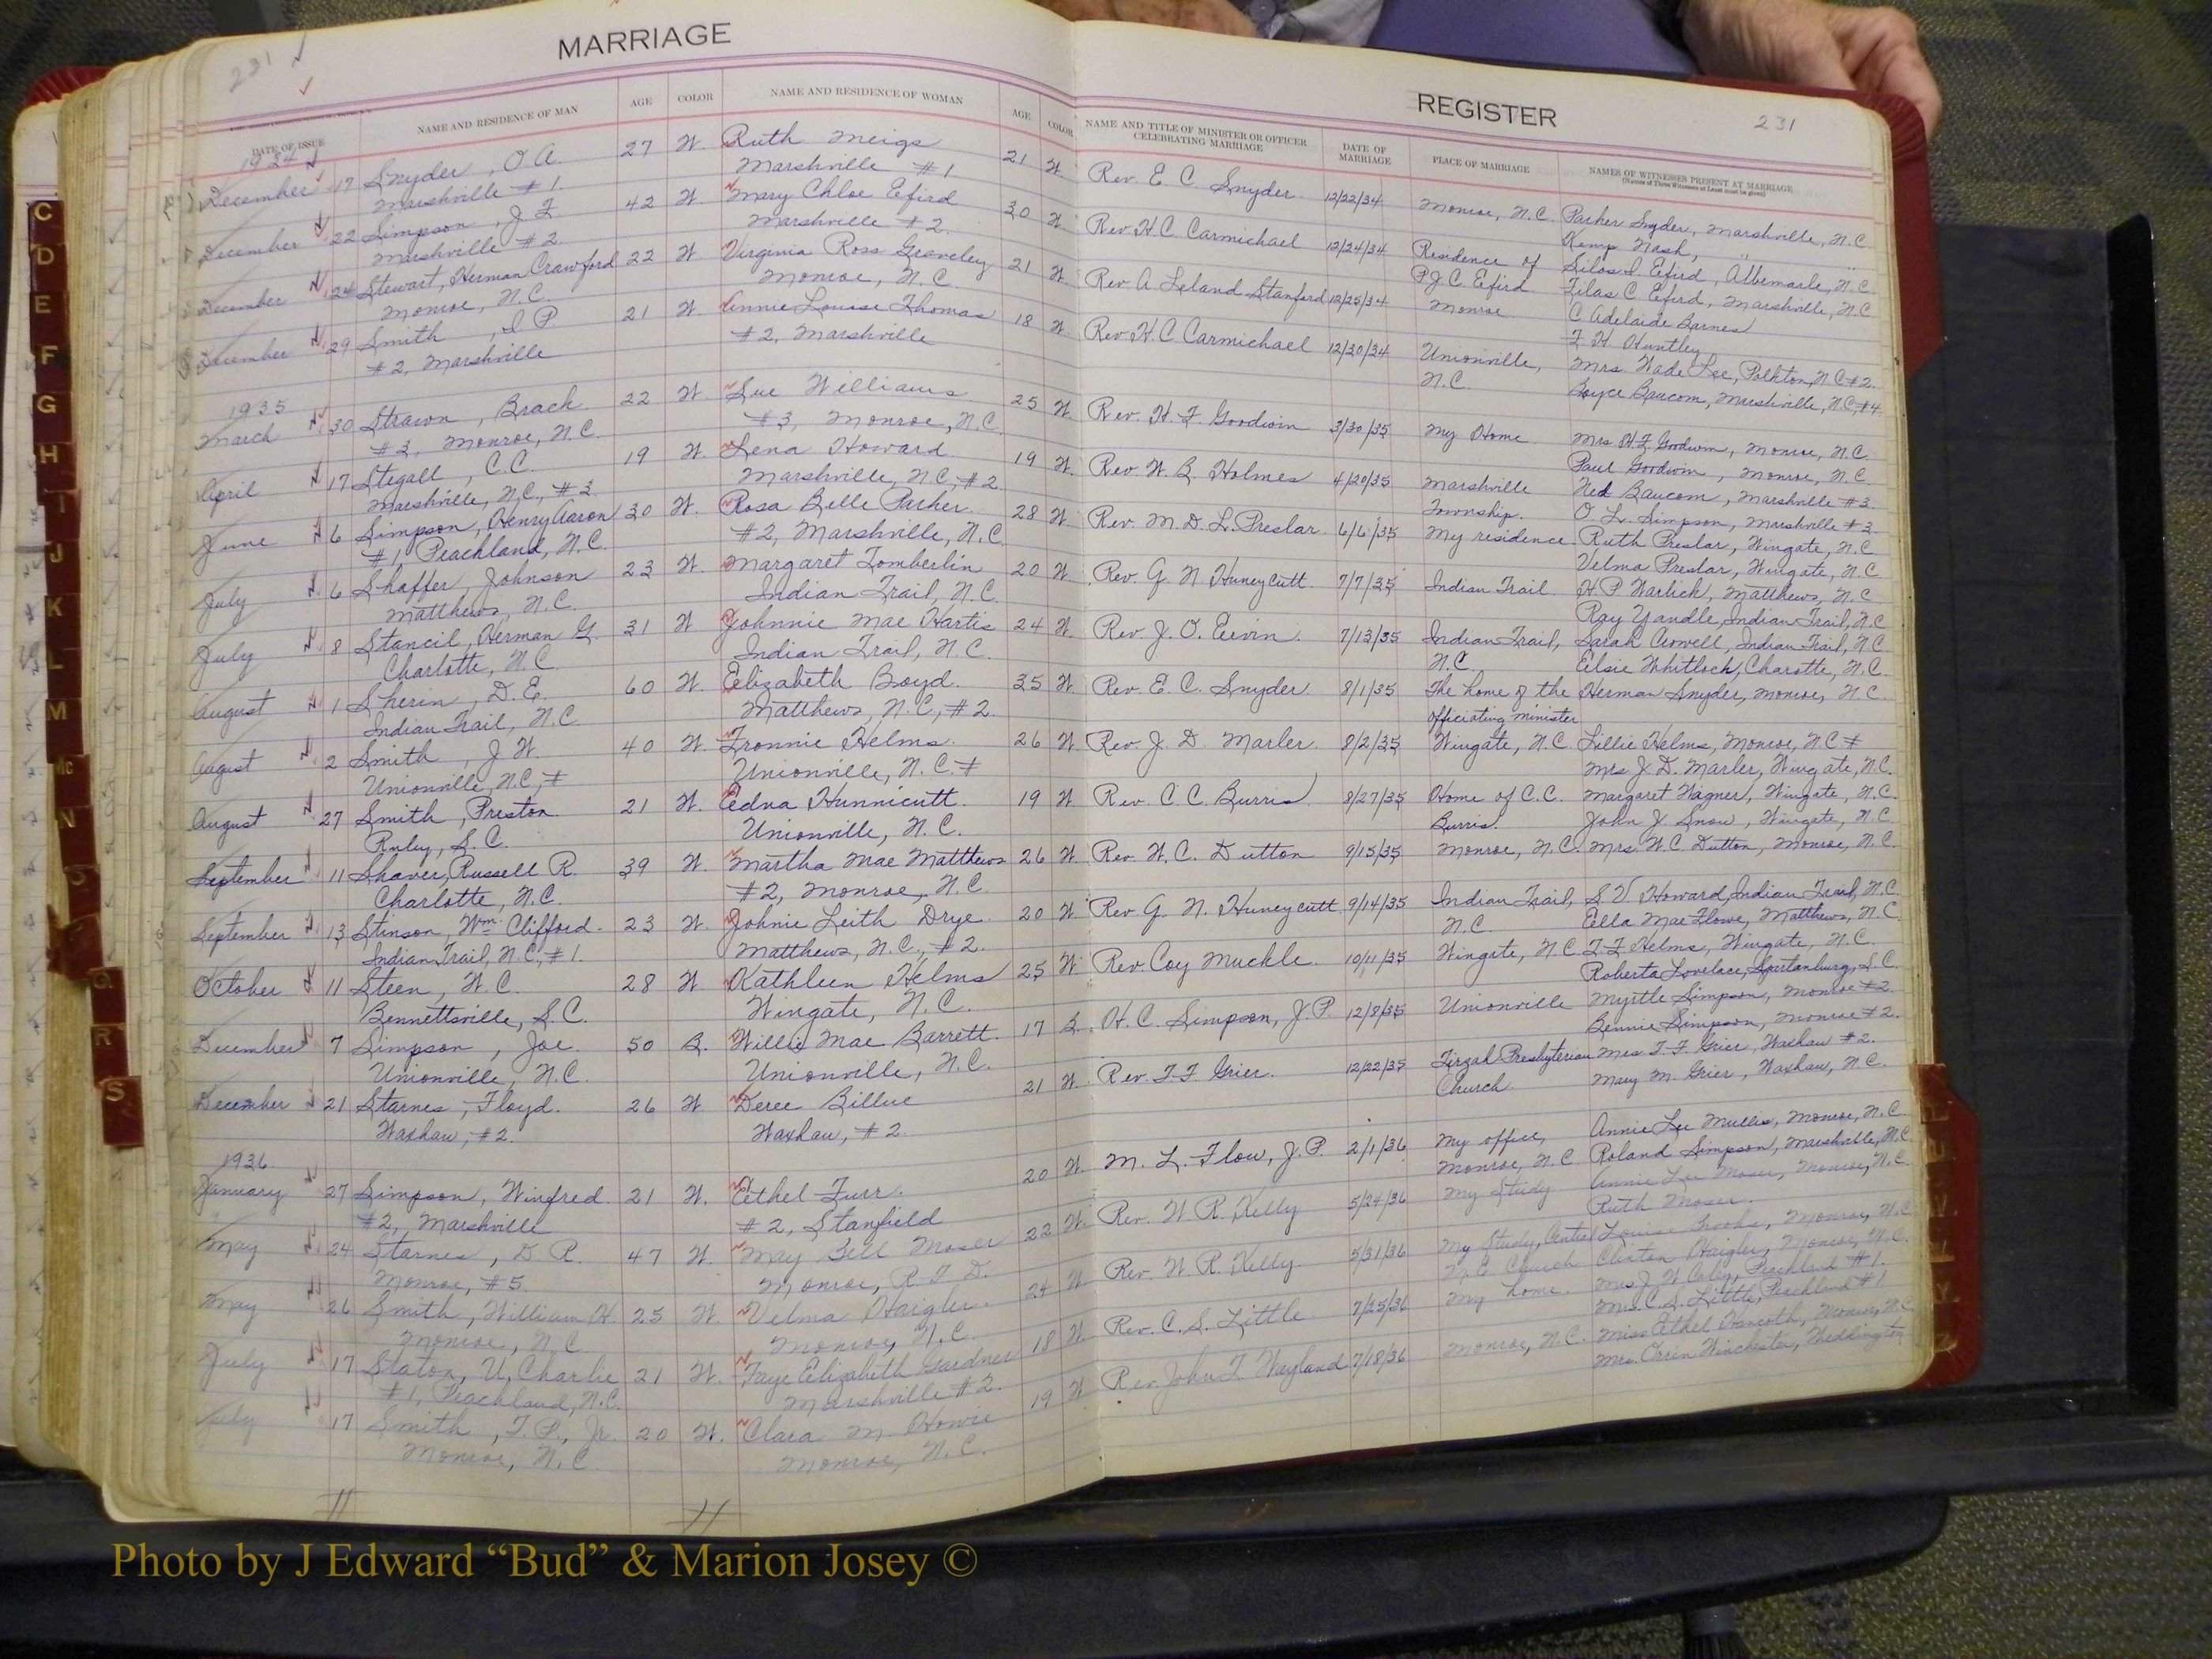 231
MARRIAGE
REGISTER
231
DATE OF ISSUE NAME AND RESIDENCE OF MAN AGE COLOR NAME AND RESIDENCE OF WOMAN AGE COLOR NAME AND TITLE OF MINISTER OR OFFICER CELEBRATING MARRIAGE DATE OF MARRIAGE PLACE OF MARRIAGE NAMES OF WITNESSES PRESENT AT MARRIAGE
(Names of Three Witnesses at Least must be given)
1934
December 17 Snyder, O A. 27 W. Ruth Meigs 21 W. Rev. E. C. Snyder 12/22/34 Monroe, N.C. Parker Snyder, Marshville, N.C.
Marshville #1. Marshville #1 Kemp Nash, " "
December 22 Simpson, J F 42 W. Mary Chloe Efird 30 W. Rev. H. C. Carmichael 12/24/34 Residence of Silas D. Efird, Albemarle, N.C.
Marshville #2 Marshville #2. P.J.C. Efird Silas C Efird, Marshville, N.C
December 24 Stewart, Herman Crawford 22 W. Virginia Ross Graveley 21 W. Rev. A Leland Stanford 12/25/34 Monroe C Adelaide Barnes
Monroe, N.C. Monroe, N.C. F. H. Huntley
December 29 Smith, D P 21 W. Annie Louise Thomas 18 W. Rev. H. C Carmichael 12/30/34 Unionville, Mrs. Wade Lee, Polkton, N.C #2.
#2, Marshville #2, Marshville N.C. Boyce Baucom, Marshville, N.C, #4
1935
March 30 Strawn, Brach 22 W. Sue Williams 25 W. Rev. H. F. Goodwin 3/30/35 My Home Mrs H.F. Goodwin, Monroe, N.C.
#3, Monroe, N.C. #3, Monroe, N.C. Paul Goodwin, Monroe, N.C.
April 17 Stegall, C.C. 19 W. Lena Howard 19 W. Rev. W. B. Holmes 4/20/35 Marshville Ned Baucom, Marshville #3.
Marshville, N.C., #3 Marshville, N.C., #2 Township. O L. Simpson, Marshville #3.
June 6 Simpson, Henry Aaron 30 W. Rosa Belle Parker 28 W. Rev. M. D. L. Preslar 6/6/35 My residence. Ruth Preslar, Wingate, N.C
#1, Peachland, N.C. #2, Marshville, N.C. Velma Preslar, Wingate, N.C
July 6 Shaffer, Johnson 23 W. Margaret Tomberlin 20 W. Rev. G. N. Huneycutt 7/7/35 Indian Trail. H. P. Warlick, Matthews, N.C
Matthews, N.C. Indian Trail, N.C. Ray Yandle, Indian Trail, N.C
July 8 Stancil, Herman G. 31 W Johnnie Mae Hartis 24 W. Rev. J. O. Ervin. 7/13/35 Indian Trail, Sarah Crowell, Indian Trail, N.C
Charlotte, N.C. Indian Trail, N.C. N.C. Elsie Whitlock, Charotte, N.C.
August 1 Sherin, D. E. 60 W. Elizabeth Boyd. 35 W Rev. E. C. Snyder. 8/1/35 The home of the Herman Snyder, Monroe, N.C
Indian Trail, N.C Matthews, N.C., #2. officiating minister
August 2 Smith, J W. 40 W. Fronnie Helms. 26 W. Rev. J. D. Marler. 8/2/35 Wingate, N.C. Lillie Helms, Monroe, N.C #
Unionville, N.C, # Unionville, N.C. # Mrs J. D. Marler, Wingate, N.C.
August 27 Smith, Preston 21 W. Edna Hunnicutt. 19 W Rev. C C. Burris 8/27/35 Home of C.C. Margaret Wagner, Wingate, N.C.
Ruby, S.C. Unionville, N.C. Burris. John J. Snow, Wingate, N.C.
September 11 Shaver, Russell R. 39 W. Martha Mae Matthews 26 W Rev. W. C. Dutton 9/15/35 Monroe, N.C. Mrs. W C Dutton, Monroe, N.C.
Charlotte, N.C. #2, Monroe, N.C.
September 13 Stinson, Wm. Clifford. 23 W. Johnie Leith Drye. 20 W Rev. G. N. Huneycutt 9/14/35 Indian Trail, S V. Howard, Indian Trail, N.C.
Indian Trail, N.C., #1. Matthews, N.C., #2. N.C. Ella Mae Flowe, Matthews, N.C.
October 11 Steen, W. C. 28 W. Kathleen Helms 25 W Rev. Coy Muckle. 10/11/35 Wingate, N.C. T. F. Helms, Wingate, N.C.
Bennettsville, S.C. Wingate, N.C. Roberta Lovelace, Spartanburg, S.C.
December 7 Simpson, Joe 50 B. Willie Mae Barrett. 17 B. H. C. Simpson, J.P. 12/8/35 Unionville Myrtle Simpson, Monroe #2.
Unionville, N.C. Unionville, N.C. Bennie Simpson, Monroe #2.
December 21 Starnes, Floyd. 26 W Deree Billue 21 W. Rev. T. F Grier. 12/22/35 Tirzah Presbyterian Mrs T. F. Grier, Waxhaw #2.
Waxhaw, #2. Waxhaw, #2. Church. Mary M. Grier, Waxhaw, N.C.
1936
January 27 Simpson, Winfred 21 W. Ethel Furr. 20 W. M. L. Flow, J.P. 2/1/36 My office, Annie Lee Mullis, Monroe, N.C.
#2, Marshville #2, Stanfield Monroe, N.C Roland Simpson, Marshville, N.C
May 24 Starnes, D. R. 47 W. May Bell Moser 22 W. Rev. W R. Kelly 5/24/36 My Study Annie Lee Moser, Monroe, N.C.
Monroe, #5. Monroe, R F D. Ruth Moser.
May 26 Smith, William H. 25 W. Velma Haigler. 24 W Rev. W R. Kelly. 5/31/36 My Study, Central Louise Brooks, Monroe, N.C
Monroe, N.C. Monroe, N.C. M. E Church Claxton Haigler, Monroe, N.C.
July 17 Staton, U. Charlie 21 W. Faye Elizabeth Gardner 18 W Rev. C. S. Little 7/25/36 My home. Mrs J. W. Peachland #1.
#1, Peachland, N.C. Marshville #2. Mrs. C. S. Little, Peachland #1.
July 17 Smith, T. P., Jr. 20 W. Clara M. Howie 19 W Rev. John F. Wayland 7/18/36 Monroe, N.C. Miss Ethel Monroe, N.C
Monroe, N.C Monroe, N.C. Mrs. Orrin Winchester, Weddington
11 11
C
D
E
F
G
H
I
J
K
L
M
Mc
N
O
Q
R
S
Photo by J Edward “Bud” & Marion Josey ©